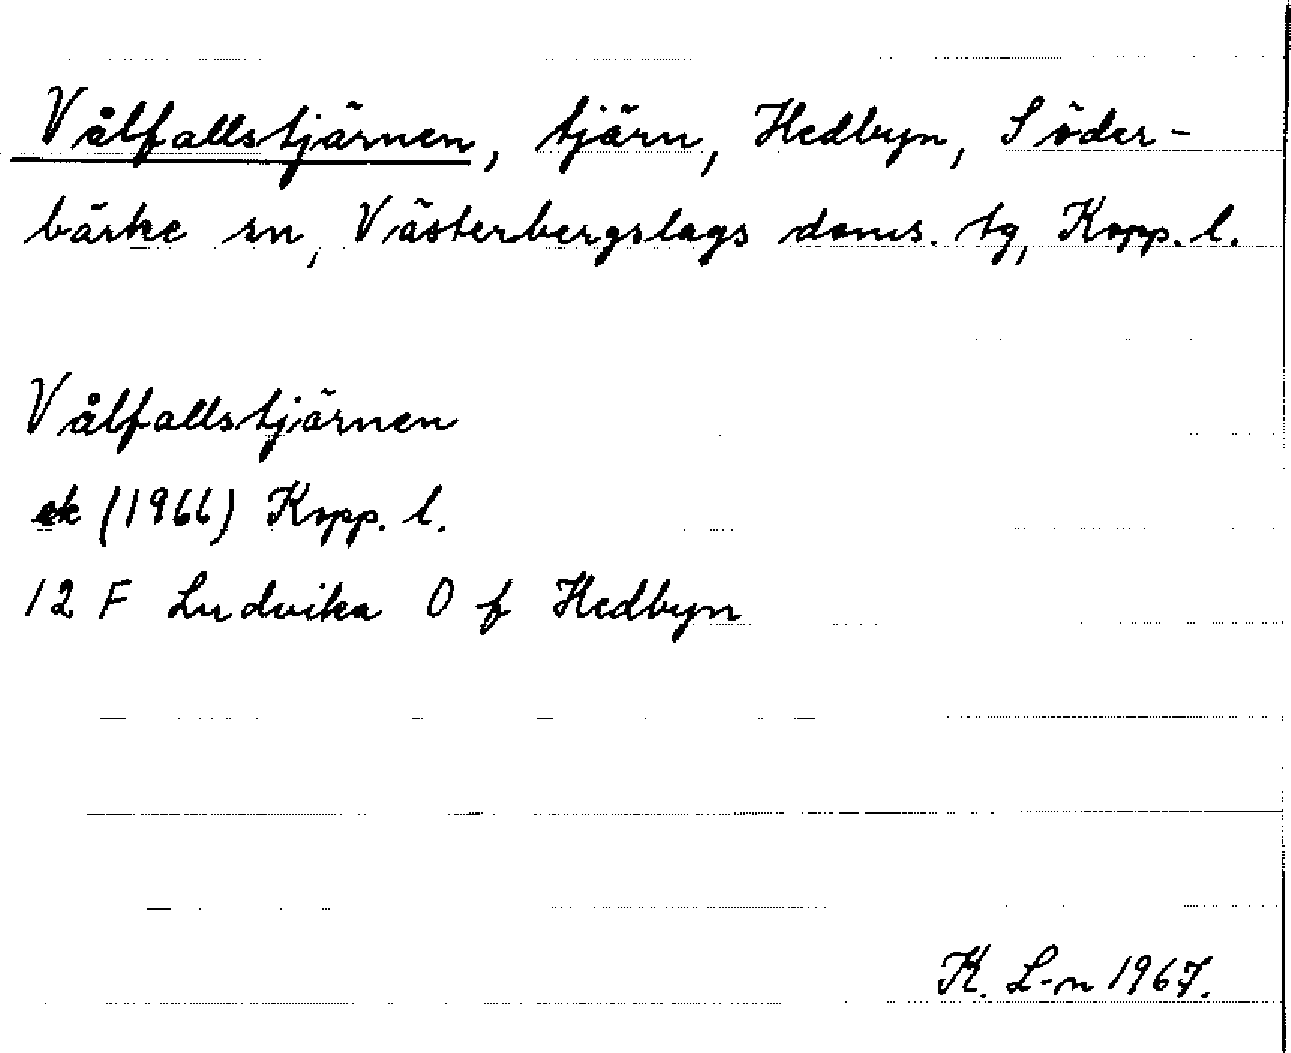 Vålfallstjärnen, tjärn, Hedbyn, Söder-
bärke sn, Västerbergslags doms. tg, Kopp. l.
Vålfallstjärnen
ek (1966) Kopp. l.
12 F Ludvika 0 f Hedbyn
K. L-n 1967.